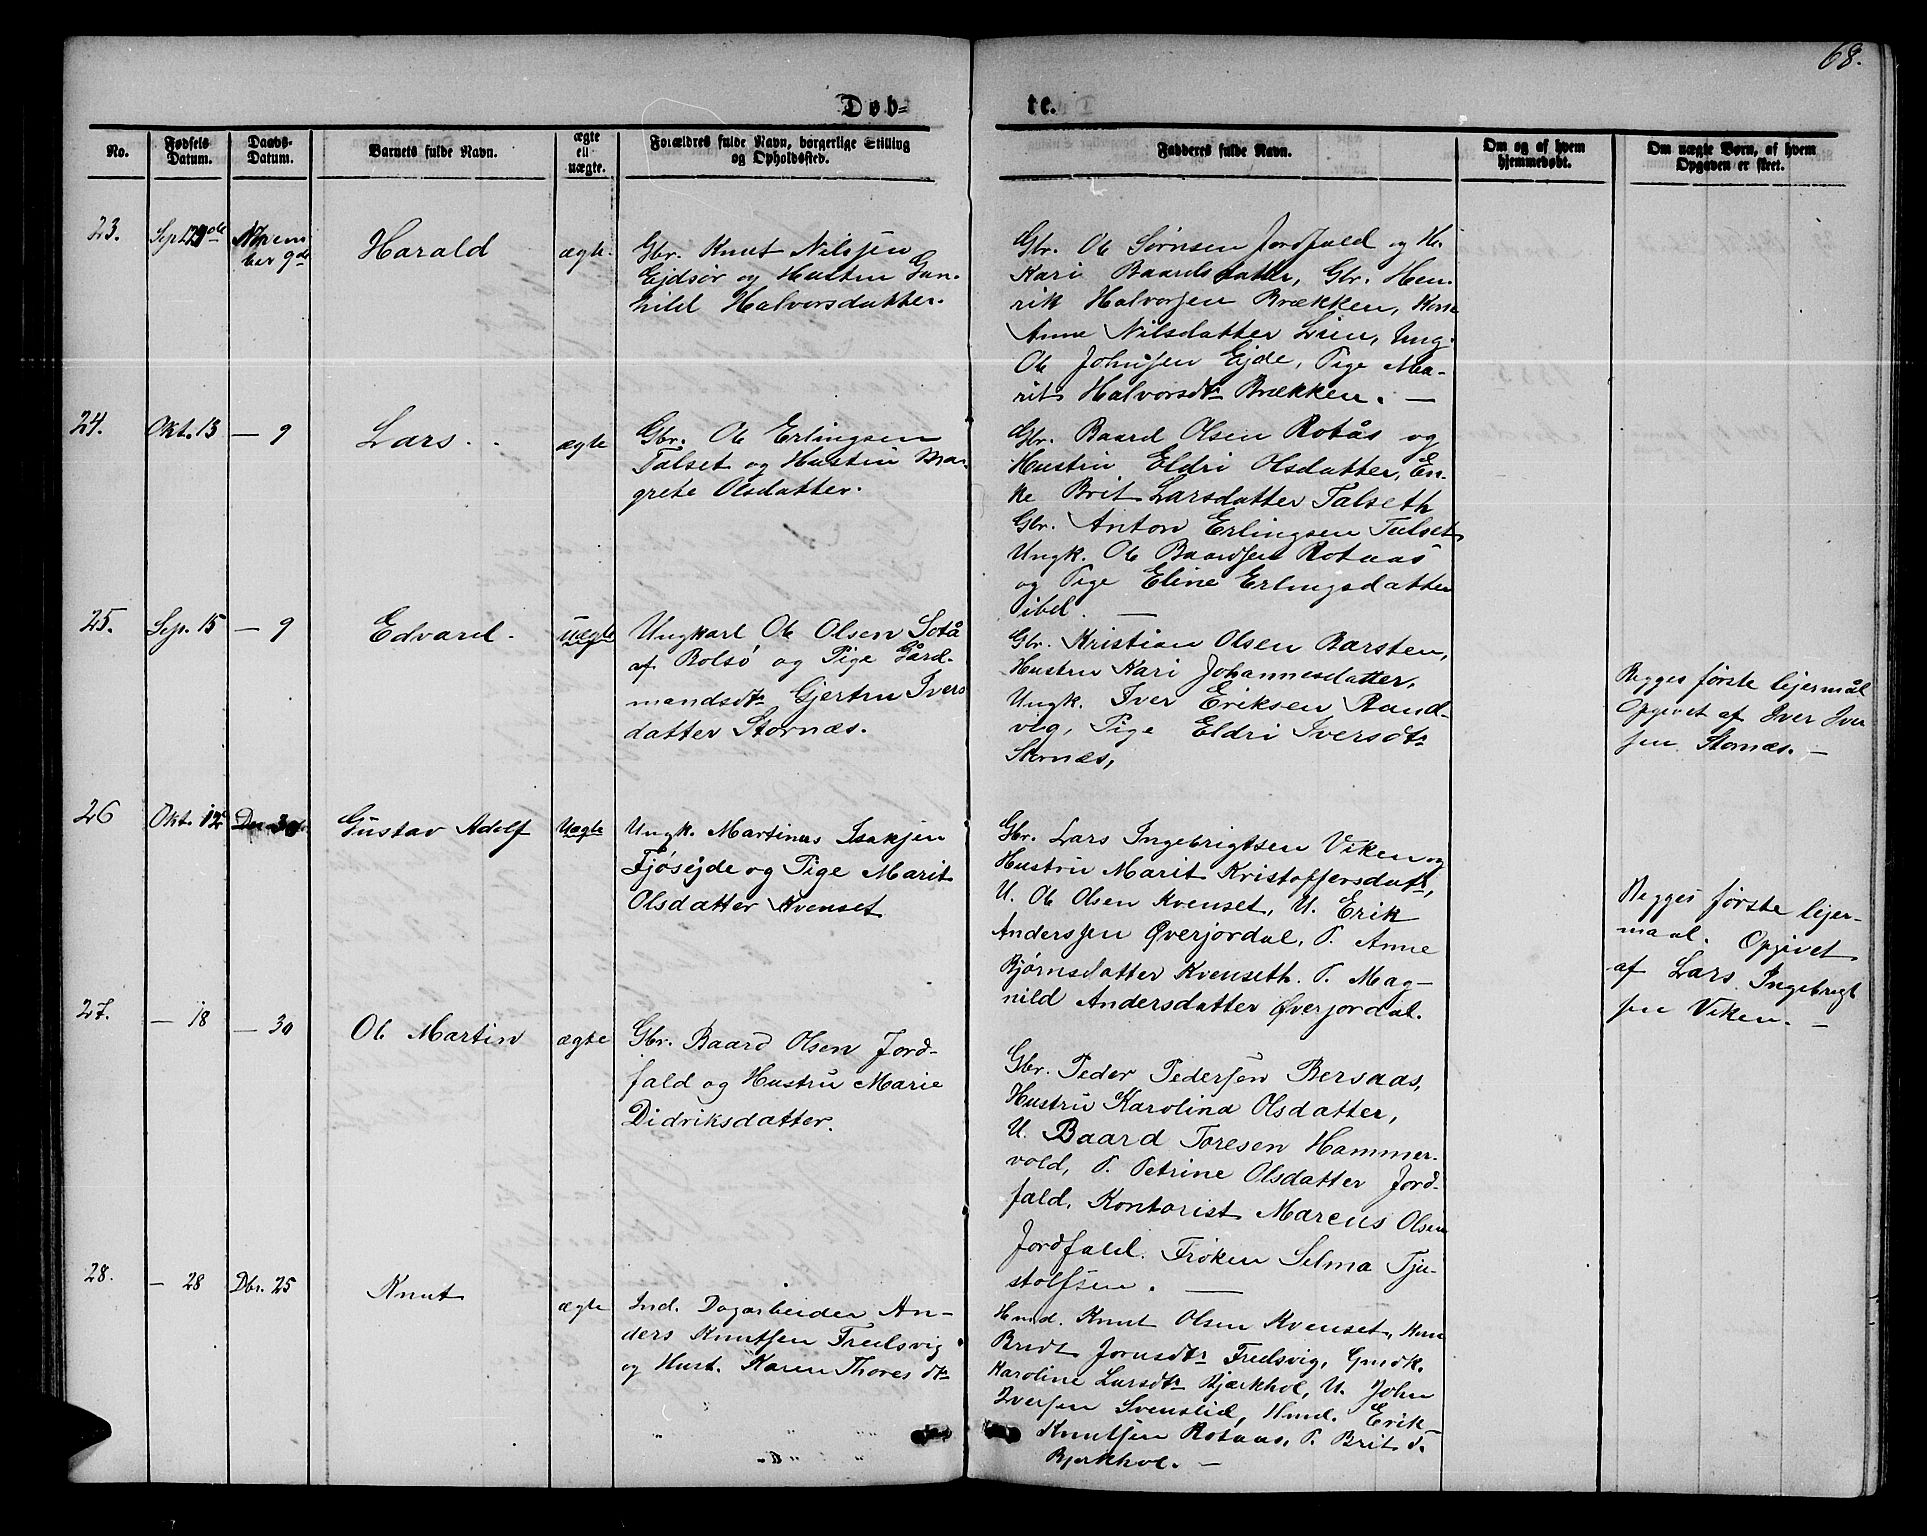 68.
Døb=
te.
No.
Fødsels Datum.
Daabs-Datum.
Barnets fulde Navn.
ægte ell uægte.
Forældres fulde Navn, borgerlige Stilling og Opholdssted.
Fadderes fulde Navn.
Om og af hvem hjemmedøbt.
Om uægte Børn, af hvem Opgaven er skeet.
23.
Novem
ber 9de
Harald
ægte.
Gbr. Knut Nilssen
Ejdsør og Hustru Gun-
hild Halvorsdatter.
Gbr. Ole Sørnsen Jordfald og H.
Kari Baardsdatter, Gbr. Hen-
rik Halvorsen Brækken, Kone
Anne Nilsdatter Lien, Ung.
Ole Johnsen Ejde, Pige Ma-
rit Halvorsdtr Brækken. —
24.
Okt. 13
— 9
Lars.
ægte
Gbr. Ole Erlingsen
Talset og Hustru Mar-
grete Olsdatter.
Gbr. Baard Olsen Rotås og
Hustru Eldri Olsdatter, En-
ke Brit Larsdatter Talseth
Gbr. Anton Erlingsen Talset
Ungk. Ole Baardsen Rotaas
og Pige Eline Erlingsdatter
ibd. —
25.
Sep. 15
— 9
Edvard.
uægte
Ungkarl Ole Olsen Sotå
af Bolsø og Pige Gård-
mandsdtr Gjertru Ivers
datter Stornæs.
Gbr. Kristian Olsen Barsten,
Hustru Kari Johannesdatter,
Ungk. Iver Eriksen Rand-
vig, Pige Eldri Iversdtr
Stornæs,
Begges første lejermål
Opgivet af Iver Iver
sen Stornæs. —
26
Okt. 12
30
Gustav Adolf
Uægte
Ungk. Martinus Isaksen
Fjøsejde og Pige Marit
Olsdatter Kvenset
Gbr. Lars Ingebrigtsen Viken og
Hustru Marit Kristoffersdatr,
U. Ole Olsen Kvenset, U. Erik
Anderssen Øverjordal, P. Anne
Bjørnsdatter Kvenseth. P. Mag-
nild Andersdatter Øverjordal.
Begges første lejer-
maal. Opgivet
af Lars Ingebrigt
sen Viken. —
27.
— 18
— 30
Ole Martin
ægte
Gbr. Baard Olsen Jord-
fald og Hustru Marie
Didriksdatter.
Gbr. Peder Pedersen Bersaas,
Hustru Karolina Olsdatter,
U. Baard Toresen Hammer-
vold, P. Petrine Olsdatter Jord-
fald, Kontorist Marcus Olsen
Jordfald. Frøken Selma Tju-
stolfsen. —
28.
— 28
Dbr. 25
Knut
ægte
Ind. Dagarbeider An-
ders Knutsen Fredsvig
og Hust. Karen Thoresdtr
Hmd. Knut Olsen Kvenset, Kone
Bredt Jornsdtr Fredsvig, Gmdk.
Karoline Larsdtr Bjerkhol, U. John
Iversen Svenslid, Hmd. Erik
Knutsen Rotaas, P. Brit d.
Bjerkhol. —